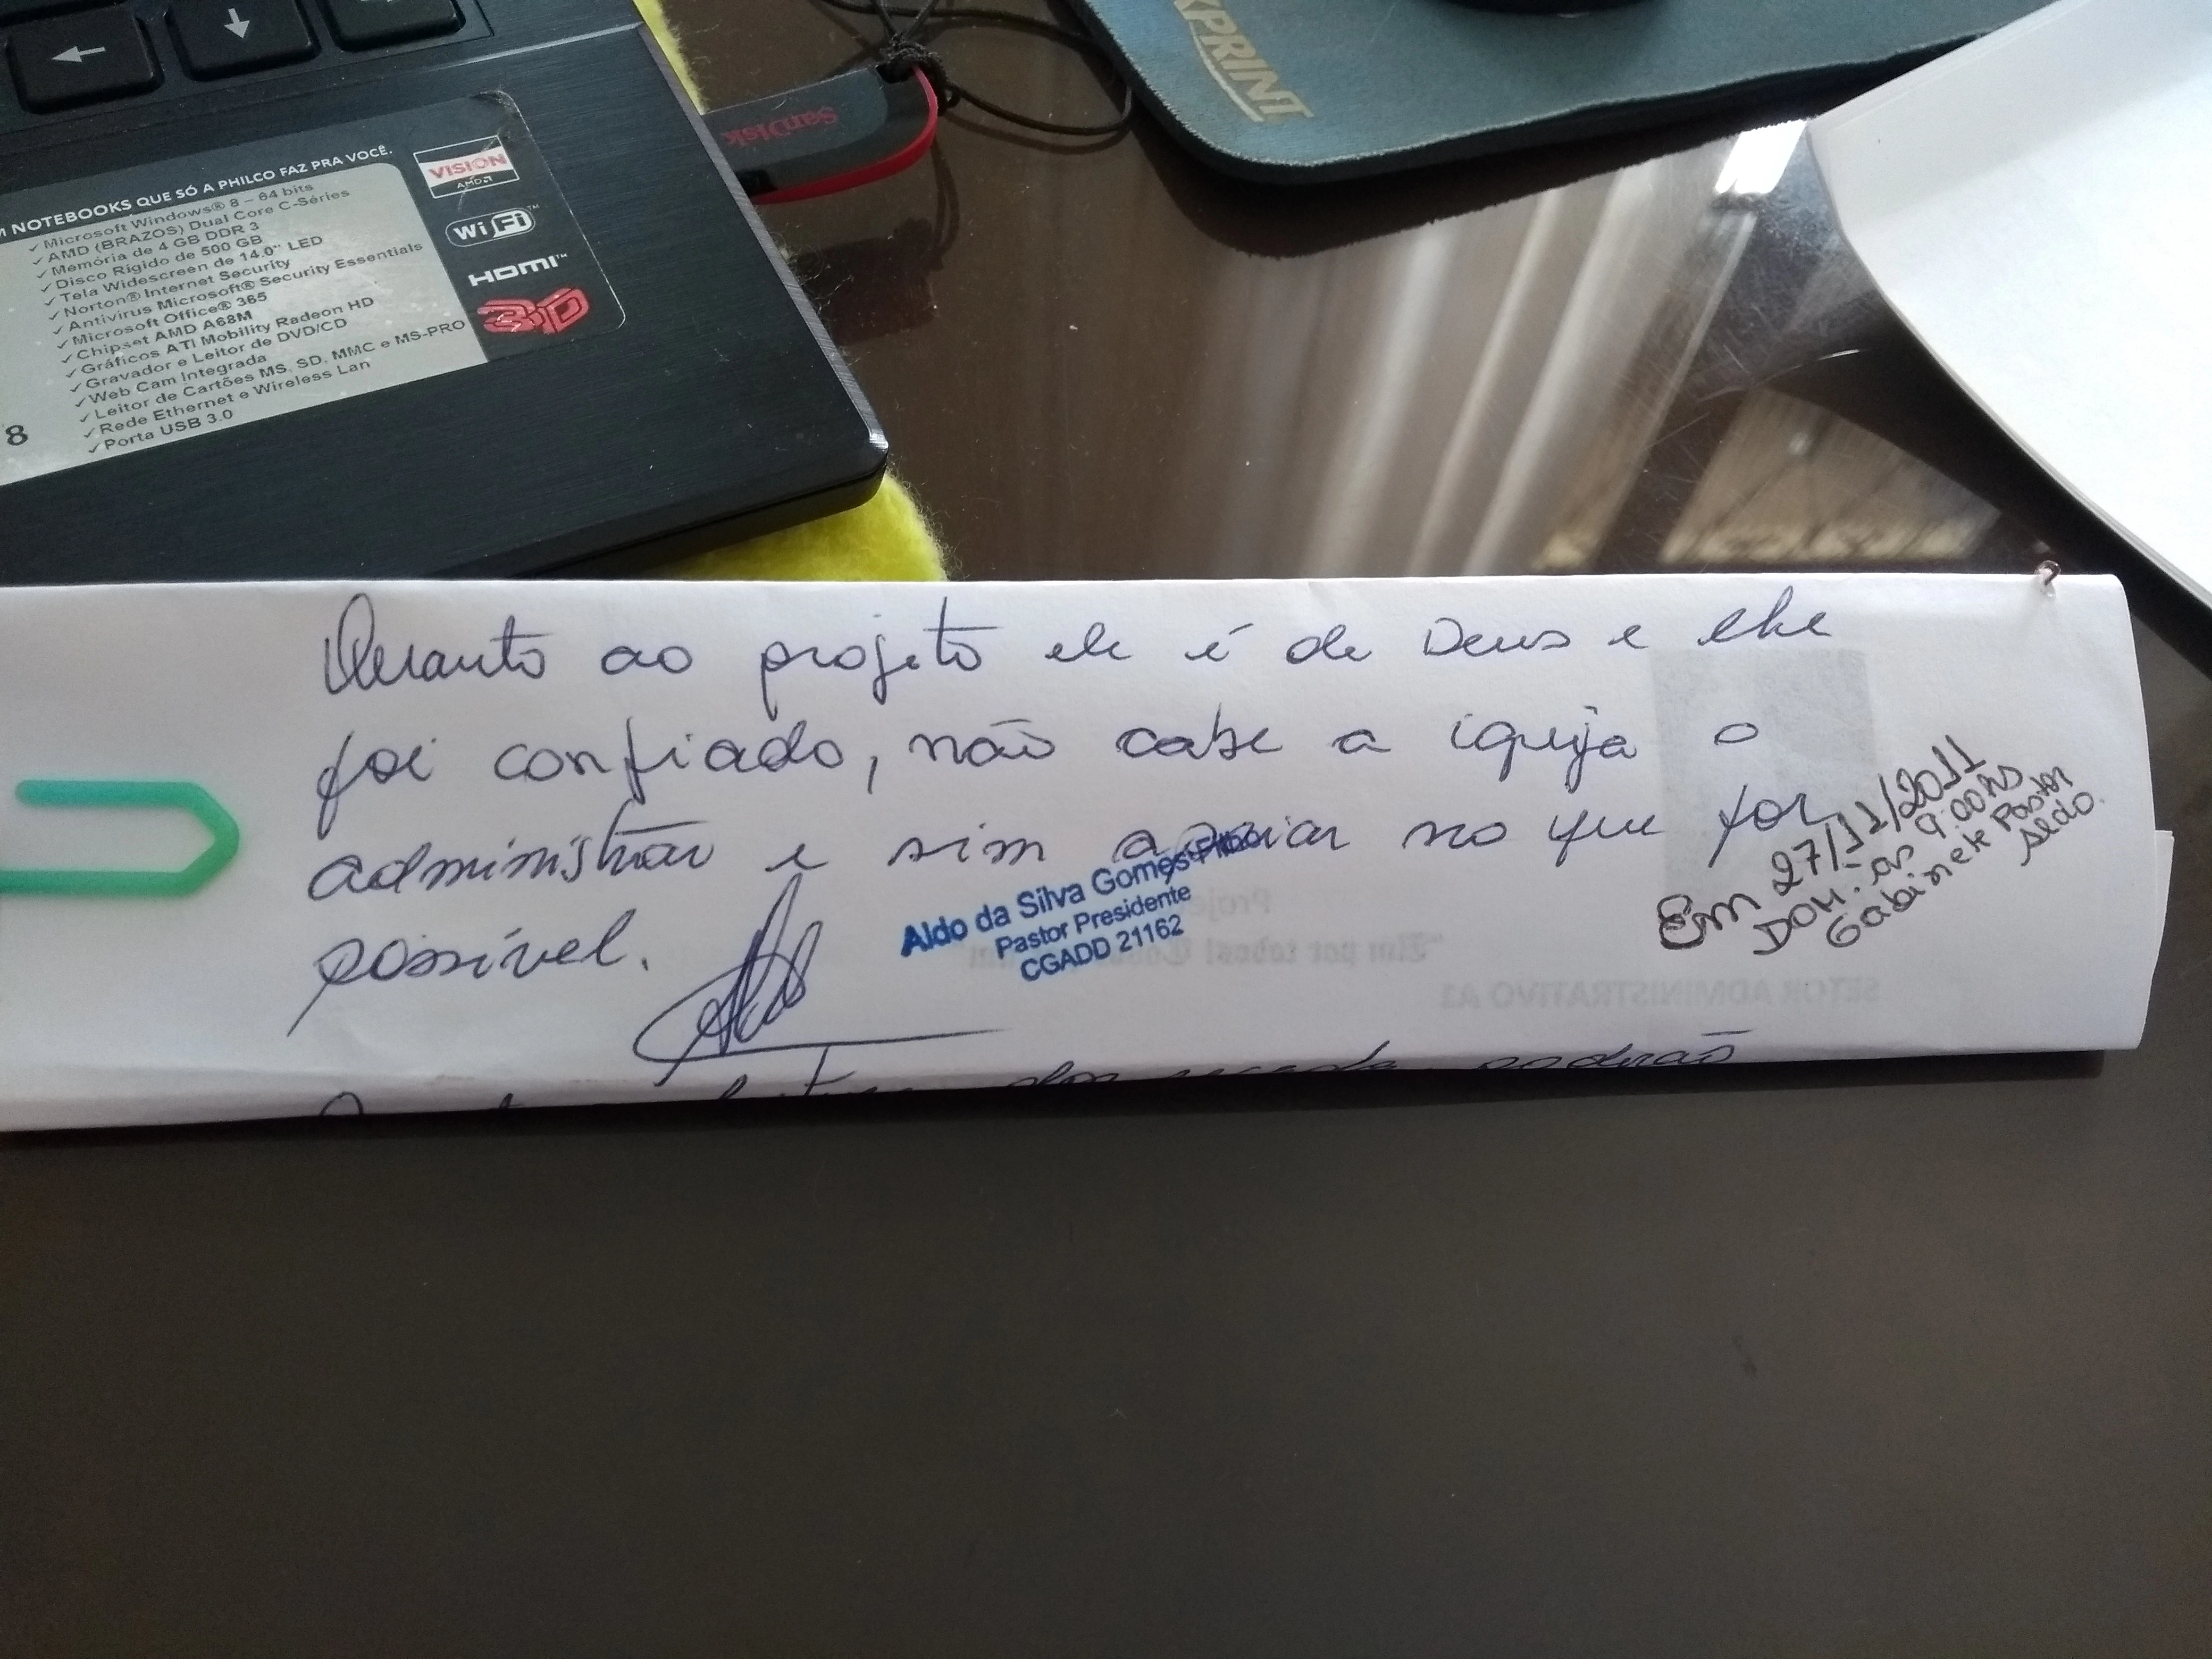 M NOTEBOOKS QUE SÓ A PHILCO FAZ PRA VOCÊ.
✓ Microsoft Windows® 8 – 64 bits
✓ AMD (BRAZOS) Dual Core C-Séries
✓ Memória de 4 GB DDR 3
✓ Disco Rígido de 500 GB
✓ Tela Widescreen de 14.0" LED
✓ Norton® Internet Security
✓ Antivirus Microsoft® Security Essentials
✓ Microsoft Office® 365
✓ Chipset AMD A68M
✓ Gráficos ATI Mobility Radeon HD
✓ Gravador e Leitor de DVD/CD
✓ Web Cam Integrada
✓ Leitor de Cartões MS, SD, MMC e MS-PRO
✓ Rede Ethernet e Wireless Lan
✓ Porta USB 3.0
8
VISION
AMD
WiFi™
HDMI™
3D
SanDisk
XPRINT
Quanto ao projeto ele é de Deus e lhe
foi confiado, não cabe a igreja o
administrar e sim apoiar no que for
possível.
Aldo da Silva Gomes Filho
Pastor Presidente
CGADD 21162
Em 27/11/2011
DOM. as 9:00hs
Gabinete Pastor
Aldo.
Projeto
"Um por todos! Todos por um"
SETOR ADMINISTRATIVO A1